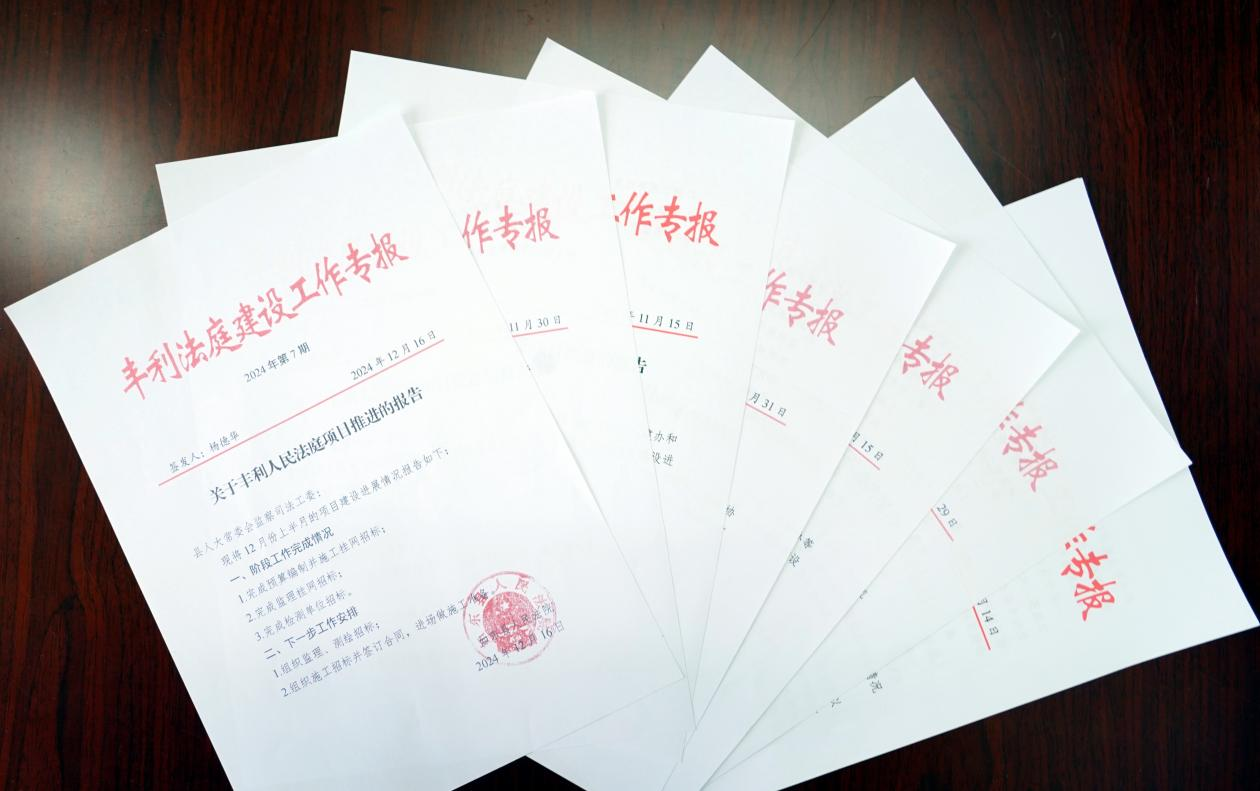 丰利法庭建设工作专报
2024年第7期
2024年12月16日
签发人：杨德华
关于丰利人民法庭项目推进的报告
县人大常委会监察司法工委：
现将12月份上半月的项目建设进展情况报告如下：
一、阶段工作完成情况
1.完成预算编制并施工挂网招标；
2.完成监理挂网招标；
3.完成检测单位招标。
二、下一步工作安排
1.组织监理、测绘招标；
2.组织施工招标并签订合同，进场做施工
东县人民法
2024年12月16日
作专报
11月30日
工作专报
11月15日
告
办和
设进
作专报
月31日
设
专报
月15日
专报
29日
专报
月14日
情况